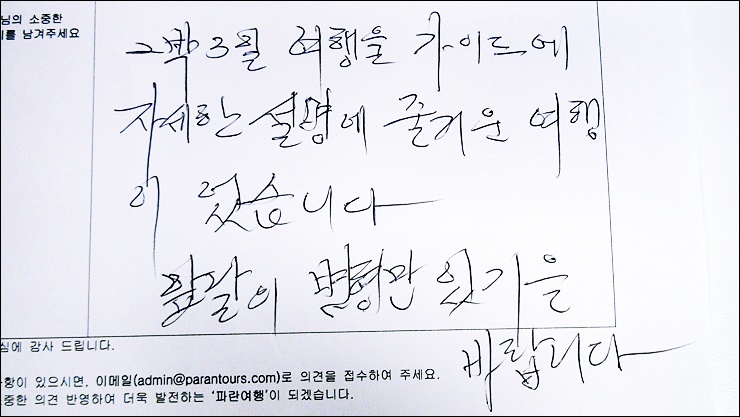 님의 소중한
를 남겨주세요
2박3일 여행을 가이드에
자세한 설명에 즐거운 여행
이 었습니다
앞날이 번영만 있기을
바랍니다
심에 감사 드립니다.
사항이 있으시면, 이메일(admin@parantours.com)로 의견을 접수하여 주세요.
중한 의견 반영하여 더욱 발전하는 '파란여행'이 되겠습니다.